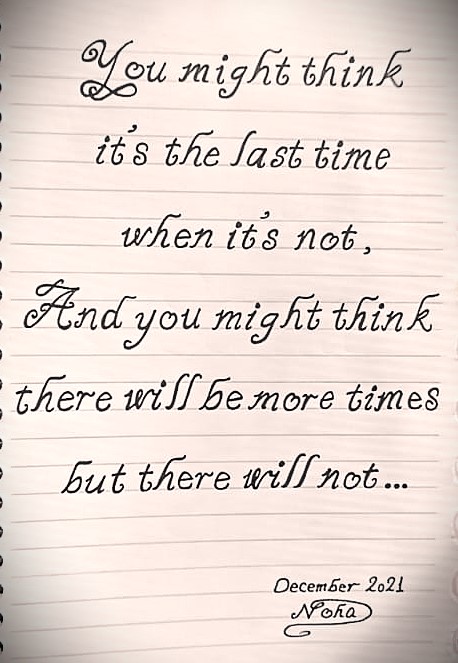 You might think
it's the last time
when it's not,
And you might think
there will be more times
but there will not...
December 2021
Noha